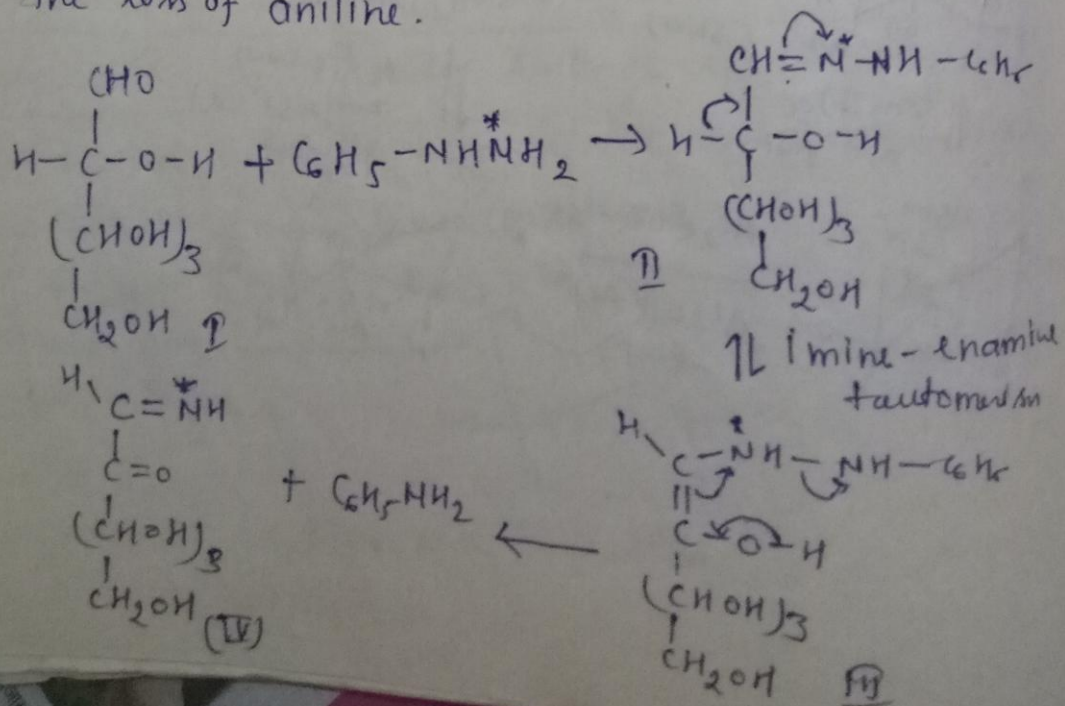 of aniline.
CHO
H-C-O-H + C6H5-NHN*H2 →
(CHOH)3
CH2OH I
CH=N*-NH-C6H5
H-C-O-H
(CHOH)3
CH2OH
II
⇌ imine-enamine
H
C-N*H-NH-C6H5
C-O-H
(CHOH)3
CH2OH
←
H
C=N*H
C=O
(CHOH)3
CH2OH (IV)
+ C6H5-NH2